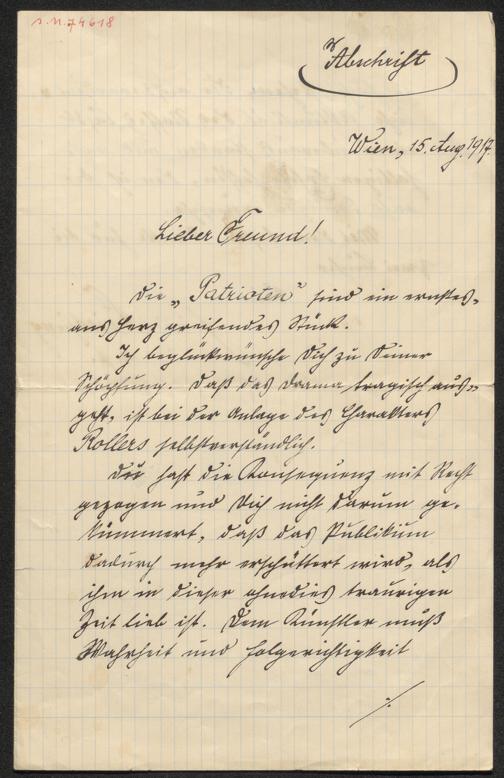 I.N. 74618
Abschrift
Wien, 15. Aug. 1917
Lieber Freund!
Die „Patrioten“ sind ein ernstes,
ans Herz greifendes Stück.
Ich beglückwünsche Dich zu Deiner
Schöpfung. Daß das Drama tragisch aus-
geht, ist bei der Anlage des Charakters
Rollers selbstverständlich.
Du hast die Konsequenz mit Recht
gezogen und Dich nicht darum ge-
kümmert, daß das Publikum
dadurch mehr erschüttert wird, als
ihm in dieser ohnedies traurigen
Zeit lieb ist. Dem Künstler muß
Wahrheit und Folgerichtigkeit
./.